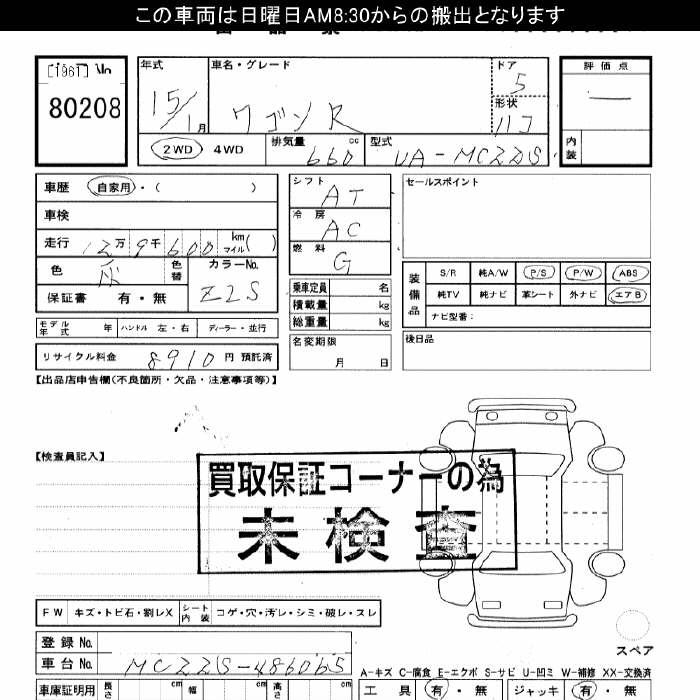 この車両は日曜日AM8:30からの搬出となります
[1961] No
80208
年式
15/1月
車名・グレード
ワゴンR
ドア
5
形状
ハコ
評価点
―
内装
2WD 4WD
排気量
660 cc
型式
UA-MCZZS
車歴 自家用・( )
車検
走行 12万9千600 km マイル( )
色 灰
色替
カラーNo.
Z2S
保証書 有・無
モデル年式 年 ハンドル 左・右 ディーラー・並行
リサイクル料金 8910 円 預託済
シフト
AT
冷房
AC
燃料
G
乗車定員 名
積載量 kg
総重量 kg
名変期限
月 日
セールスポイント
装備品
S/R 純A/W P/S P/W ABS
純TV 純ナビ 革シート 外ナビ エアB
ナビ型番:
後日品
【出品店申告欄(不良箇所・欠品・注意事項等)】
【検査員記入】
買取保証コーナーの為
未検査
FW キズ・トビ石・割レX シート内装 コゲ・穴・汚レ・シミ・破レ・スレ
登録 No.
車台 No. MCZZS-486065
スペア
A-キズ C-腐食 E-エクボ S-サビ U-凹ミ W-補修 XX-交換済
車庫証明用 長さ cm 幅 cm 高さ cm
工具 有・無 ジャッキ 有・無